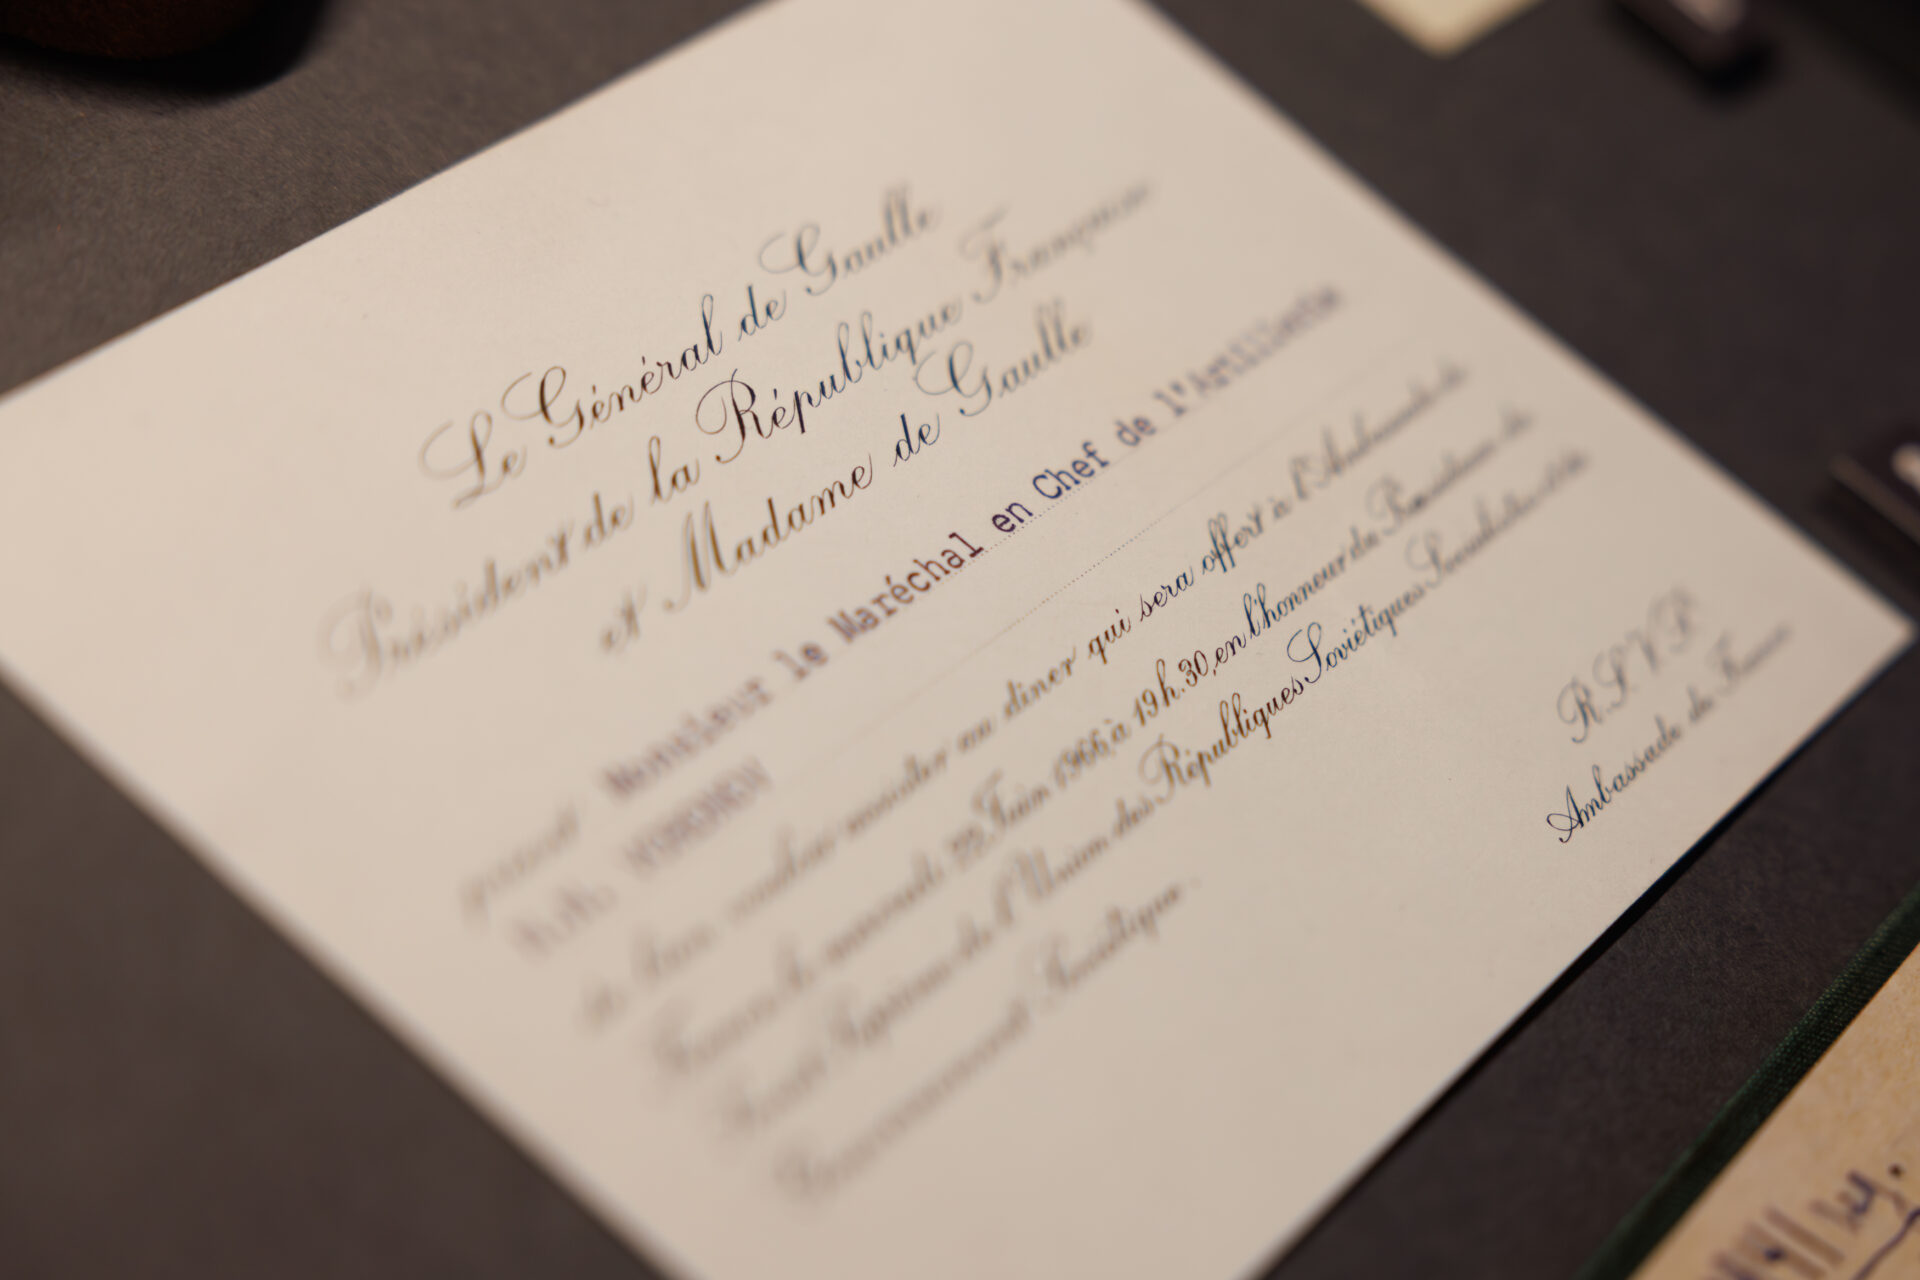 Le Général de Gaulle
Président de la République Française
et Madame de Gaulle
prient Monsieur le Maréchal en Chef de l'Artillerie
N.N. VORONOV
de bien vouloir assister au dîner qui sera offert à l'Ambassade de
France le mercredi 29 Juin 1966, à 19h.30, en l'honneur du Praesidium du
Soviet Suprême de l'Union des Républiques Socialistes et du
Gouvernement Soviétique.
R.S.V.P.
Ambassade de France